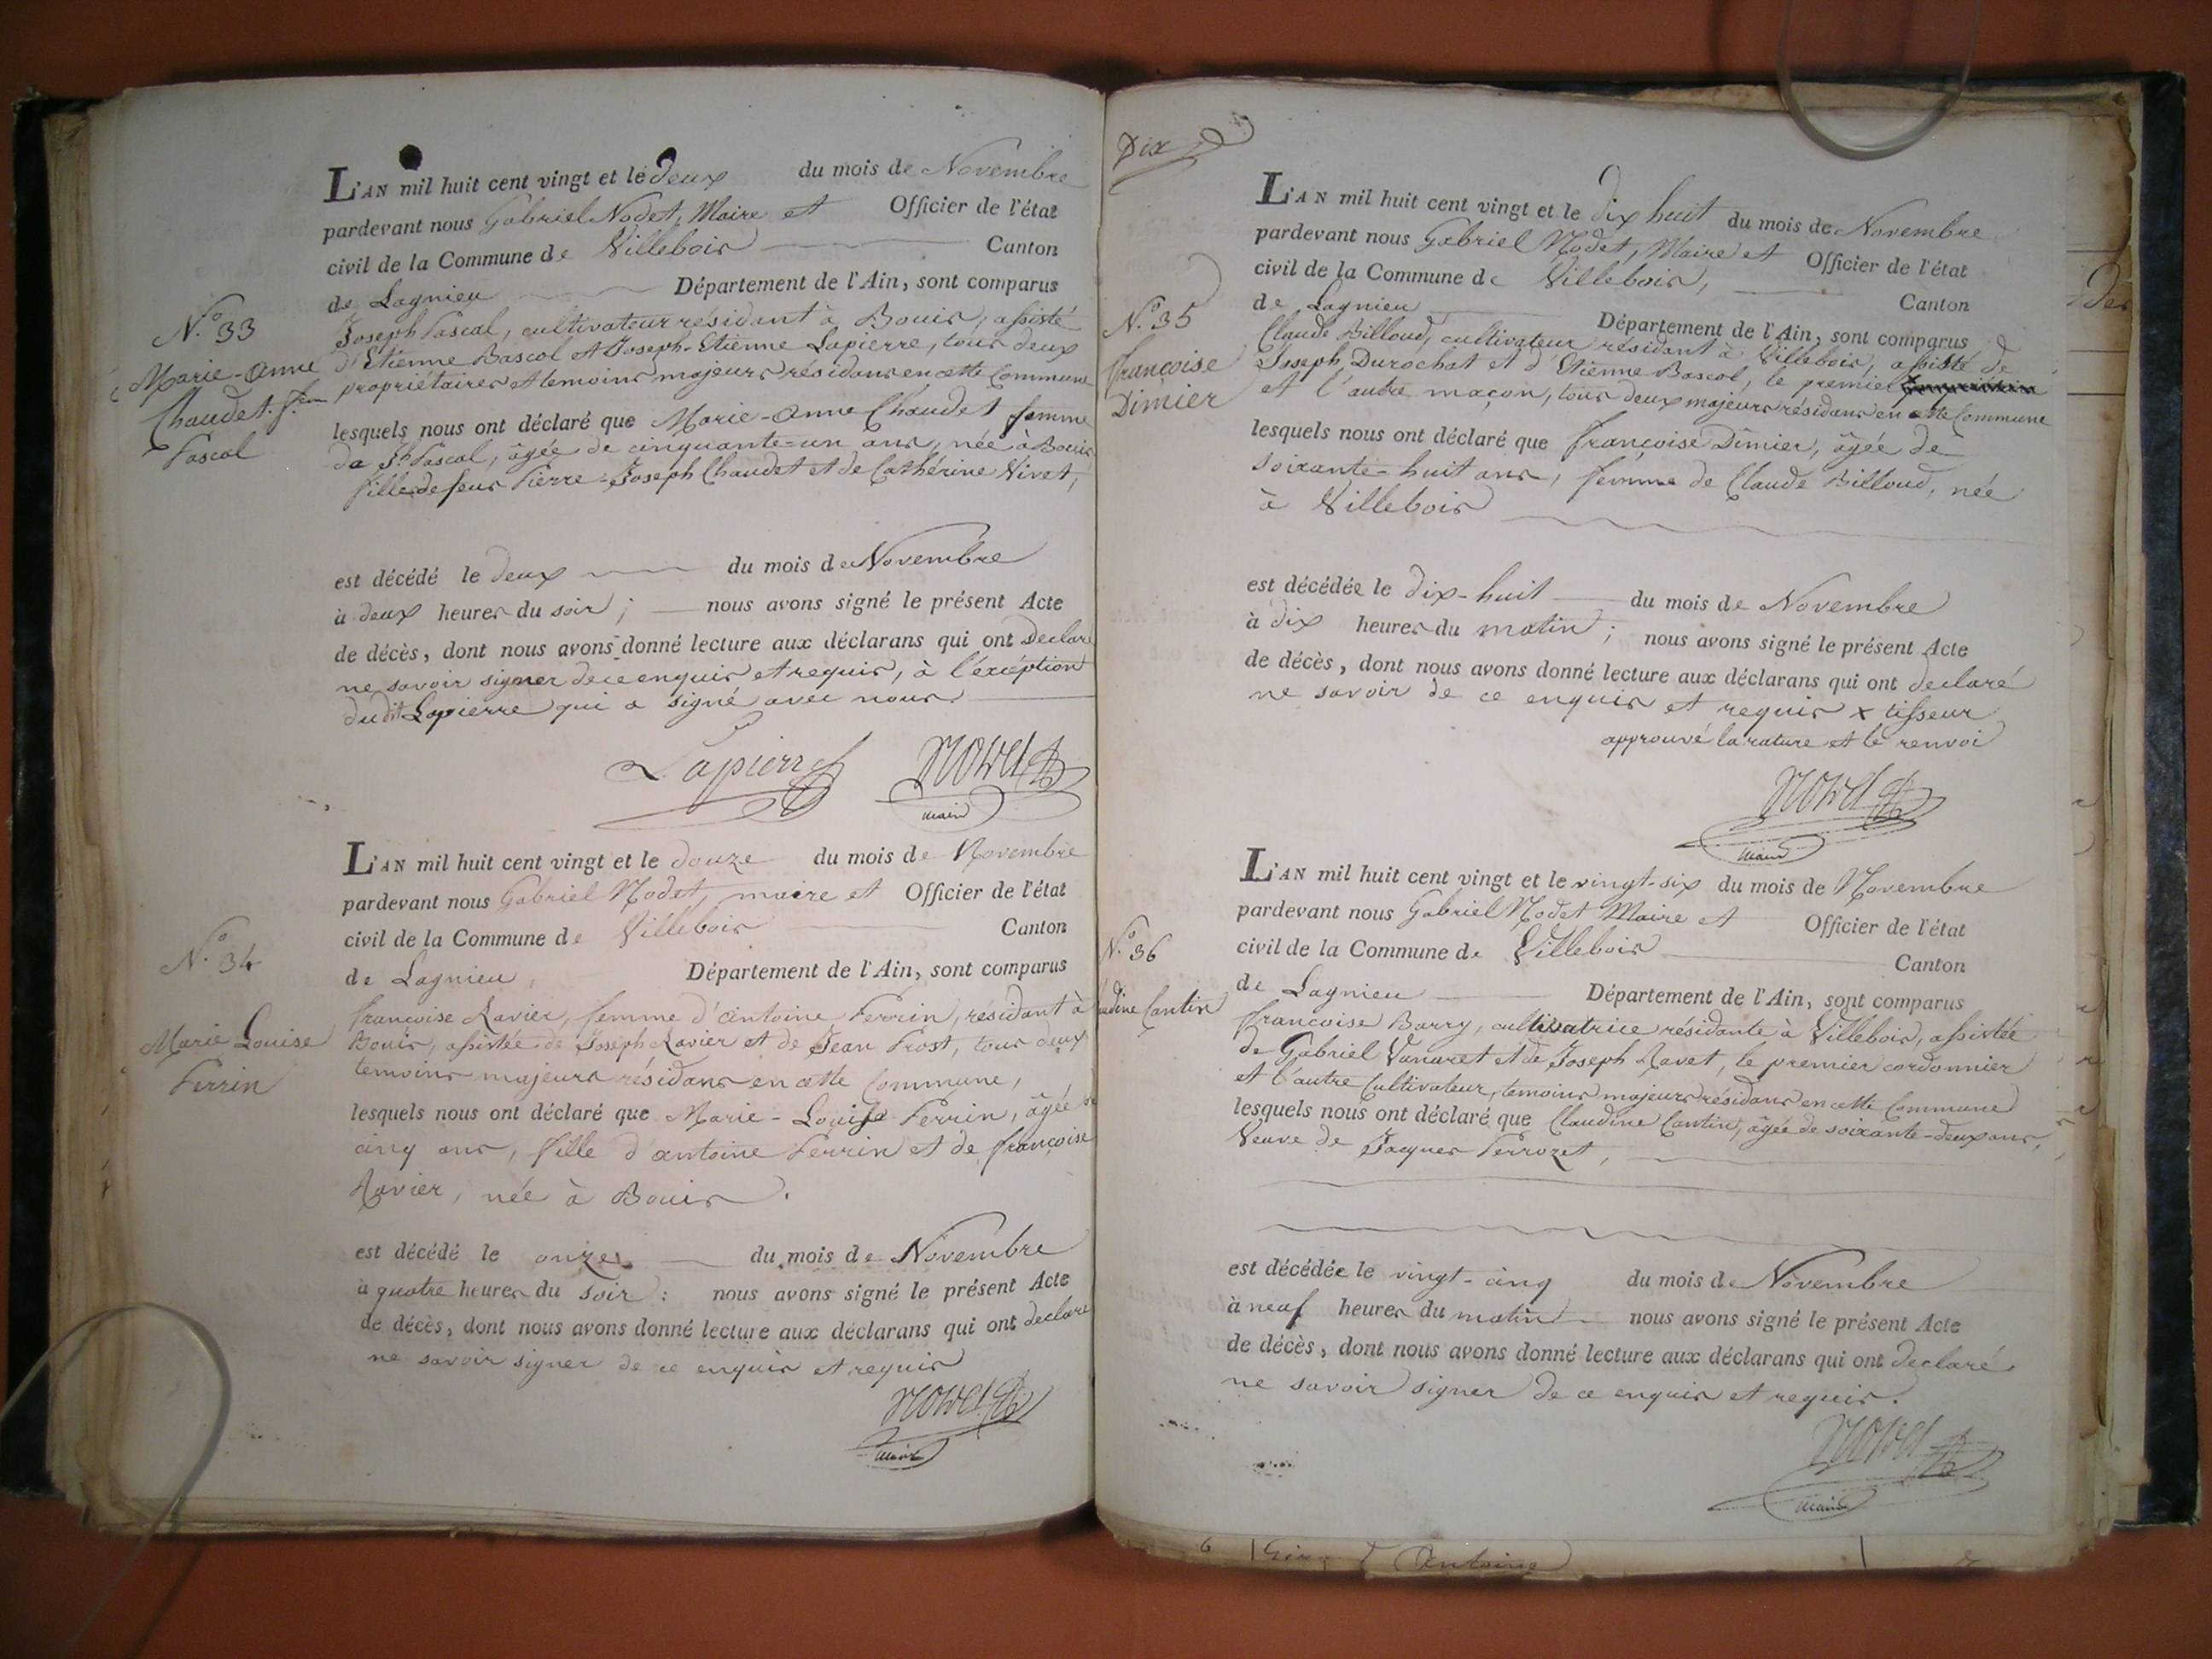 L'AN mil huit cent vingt et le deux du mois de Novembre
pardevant nous Gabriel Nodet, Maire et Officier de l'état
civil de la Commune de Villebois Canton
de Lagnieu Département de l'Ain, sont comparus
N.° 33
Marie-anne
Chaudet f.
Pascal
Joseph Pascal, cultivateur résidant à Bouis, assisté
d'Etienne Bascol et Joseph-Etienne Lapierre, tous deux
propriétaires et temoins majeurs résidans en cette Commune
lesquels nous ont déclaré que Marie-anne Chaudet femme
de Jh Pascal, âgée de cinquante-un ans, née à Bouis
fille de feus Pierre-Joseph Chaudet et de Cathérine Vivet,
est décédé le deux du mois de Novembre
à deux heures du soir ; nous avons signé le présent Acte
de décès, dont nous avons donné lecture aux déclarans qui ont Declaré
ne savoir signer de ce enquis et requis, à l'éxception
dudit Lapierre qui a signé avec nous.
Lapierre Nodet
maire
L'AN mil huit cent vingt et le douze du mois de Novembre
pardevant nous Gabriel Nodet, maire et Officier de l'état
civil de la Commune de Villebois Canton
de Lagnieu, Département de l'Ain, sont comparus
N.° 34
Marie Louise
Perrin
françoise Ravier, femme d'antoine Perrin, résidant à
Bouis, assistée de Joseph Ravier et de Jean Prost, tous deux
temoins majeurs résidans en cette Commune,
lesquels nous ont déclaré que Marie-Louise Perrin, âgée de
cinq ans, fille d'antoine Perrin et de françoise
Ravier, née à Bouis.
est décédé le onze du mois de Novembre
à quatre heures du soir : nous avons signé le présent Acte
de décès, dont nous avons donné lecture aux déclarans qui ont declaré
ne savoir signer de ce enquis et requis
Nodet
maire
Dix
L'AN mil huit cent vingt et le dix huit du mois de Novembre
pardevant nous Gabriel Nodet, Maire et Officier de l'état
civil de la Commune de Villebois, Canton
de Lagnieu Département de l'Ain, sont comparus
N.° 35
françoise
Dimier
Claude Billoud, cultivateur résidant à Villebois, assisté de
Joseph Durochat et d'Etienne Bascol, le premier x
et l'autre maçon, tous deux majeurs résidans en cette Commune
lesquels nous ont déclaré que françoise Dimier, âgée de
soixante-huit ans, femme de Claude Billoud, née
à Villebois
est décédée le dix-huit du mois de Novembre
à dix heures du matin ; nous avons signé le présent Acte
de décès, dont nous avons donné lecture aux déclarans qui ont declaré
ne savoir de ce enquis et requis x tisseur
approuvé la rature et le renvoi
Nodet
maire
L'AN mil huit cent vingt et le vingt-six du mois de Novembre
pardevant nous Gabriel Nodet Maire et Officier de l'état
civil de la Commune de Villebois Canton
de Lagnieu Département de l'Ain, sont comparus
N.° 36
udine Cantin
francoise Barry, cultivatrice résidante à Villebois, assistée
de Gabriel Vanaret et de Joseph Ravet, le premier cordonnier
et l'autre Cultivateur, temoins majeurs résidans en cette Commune
lesquels nous ont déclaré que Claudine Cantin, âgée de soixante-deux ans,
Veuve de Jacques Perrozet,
est décédée le vingt-cinq du mois de Novembre
à neuf heures du matin nous avons signé le présent Acte
de décès, dont nous avons donné lecture aux déclarans qui ont declaré
ne savoir signer de ce enquis et requis.
Nodet
maire
6 Antoine